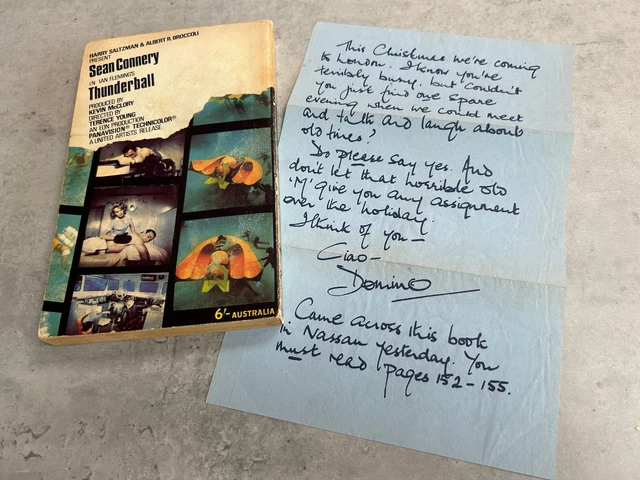 HARRY SALTZMAN & ALBERT R. BROCCOLI
PRESENT
Sean Connery
IN IAN FLEMING'S
Thunderball
PRODUCED BY
KEVIN McCLORY
DIRECTED BY
TERENCE YOUNG
AN EON PRODUCTION
PANAVISION® TECHNICOLOR®
A UNITED ARTISTS RELEASE
6/- AUSTRALIA
This Christmas we're coming
to London. I know you're
terribly busy, but couldn't
you just find one spare
evening when we could meet
and talk and laugh about
old times?
Do please say yes. And
don't let that horrible old
'M' give you any assignment
over the holiday.
I think of you—
Ciao—
Domino
Came across this book
in Nassau yesterday. You
must read pages 152-155.